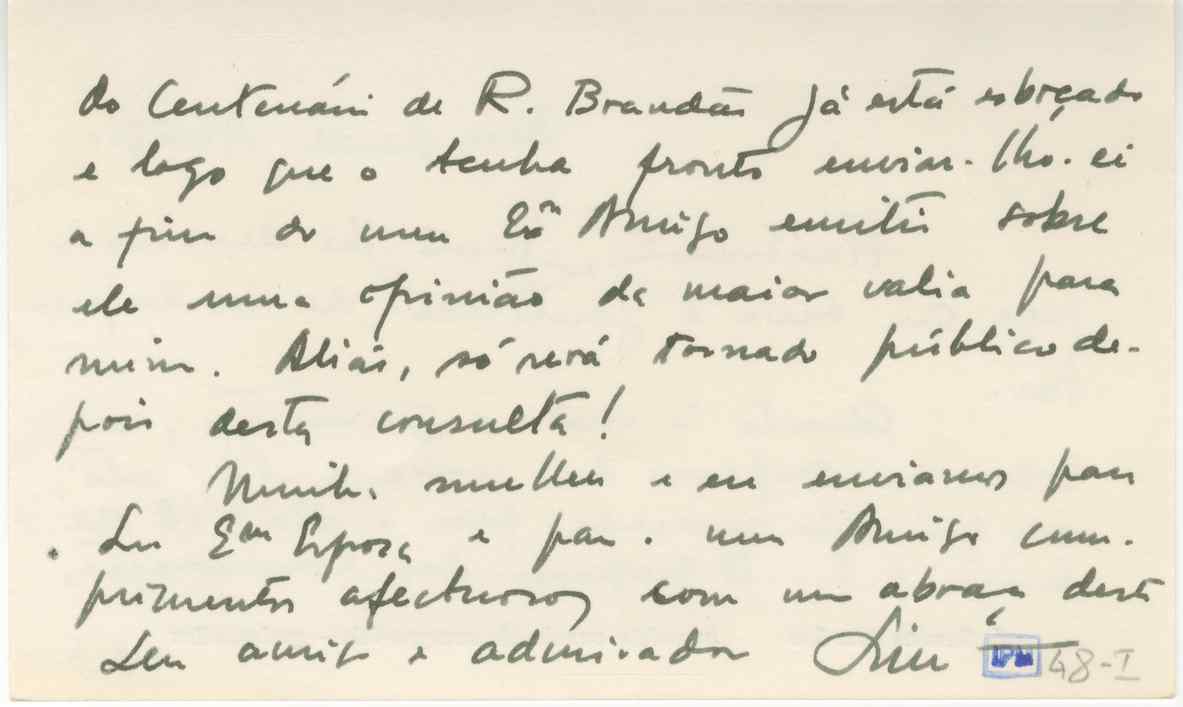 do Centenário de R. Brandão já está esboçado
e logo que o tenha pronto enviar-lho-ei
a fim do meu Exmº Amigo emitir sobre
ele uma opinião da maior valia para
mim. Aliás, só será tornado público de-
pois desta consulta!
Minha mulher e eu enviamos para
Sua Exma Esposa e para o meu Amigo cum-
primentos afectuosos com um abraço deste
seu amigo e admirador
48-I